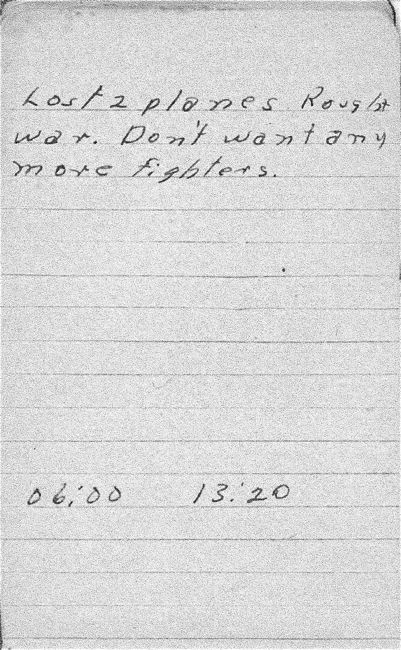 Lost 2 planes Rought
war. Don't want any
more fighters.
06:00 13:20